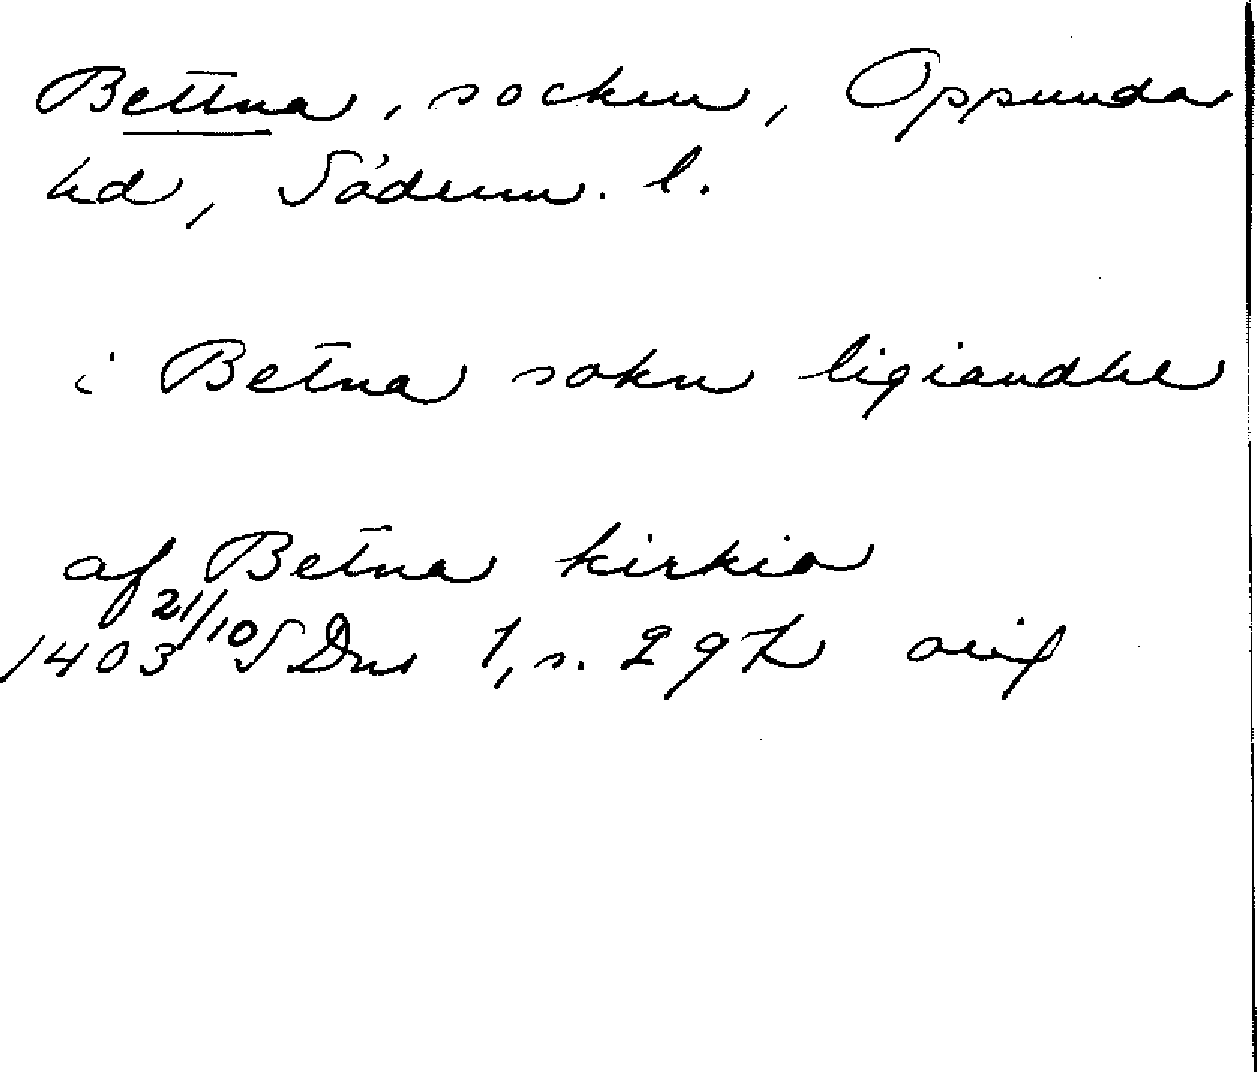 Bettna, socken, Oppunda
hd, Söderm. l.
i Betna sokn ligiandhe
af Betna kirkia
1403 21/10 SDns 1, s. 297 orig